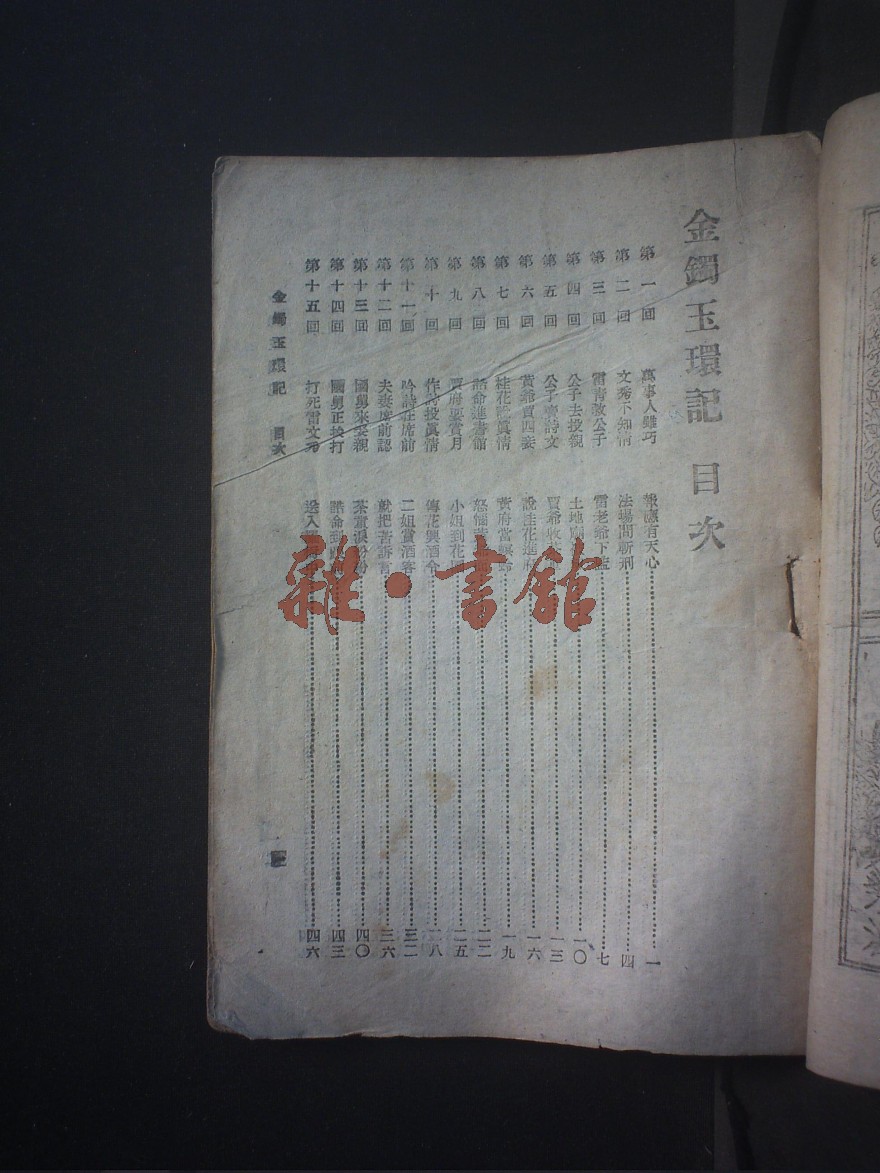 金鐲玉環記 目次
第一回 萬事人雖巧 報應有天心 一
第二回 文秀不知情 法場問斬刑 四
第三回 雷青救公子 雷老爺下 七
第四回 公子去投親 土地廟 一〇
第五回 公子賣詩文 賈爺收 一三
第六回 黃爺買四妾 說桂花進府 一六
第七回 桂花訴眞情 黃府當 一九
第八回 誥命進書館 怒惱 二二
第九回 賈府要賞月 小姐到花 二五
第十回 作詩投眞情 傳花興酒令 二八
第十一回 吟詩在席前 二姐賞酒客 三二
第十二回 夫妻席前認 就把苦訴言 三六
第十三回 國舅來娶親 茶童淚紛紛 四〇
第十四回 國舅正挨打 誥命到 四三
第十五回 打死雷文秀 送入 四六
金鐲玉環記 目次
雜·書館